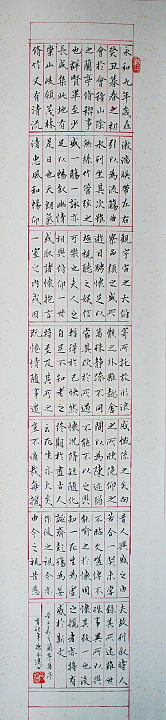 永和九年歲在
癸丑暮春之初
會於會稽山陰
之蘭亭脩禊事
也群賢畢至少
長咸集此地有
崇山峻領茂林
脩竹又有清流
激湍暎帶左右
引以為流觴曲
水列坐其次雖
無絲竹管弦之
盛一觴一詠亦
足以暢叙幽情
是日也天朗氣
清惠風和暢仰
觀宇宙之大俯
察品類之盛所以
遊目騁懷足以
極視聽之娛信
可樂也夫人之
相與俯仰一世
或取諸懷抱悟言
一室之內或因
寄所託放形浪
骸之外雖趣舍
萬殊静躁不同
當其欣於所遇
暫得於己快然
自足不知老之
將至及其所之
既惓情隨事遷
感慨係之矣向
之所欣俛仰之
間以為陳迹猶
不能不以之興
懷況脩短隨化
終期於盡古人
云死生亦大矣
豈不痛哉每攬
昔人興感之由
若合一契未嘗不
臨文嗟悼不能
喻之於懷固知
一死生為虛誕
齊彭殤為妄作
後之視今亦
由今之視昔悲
夫故列叙時人
錄其所述雖世
殊事異所以興
懷其致一也後
之攬者亦將有
感於斯文